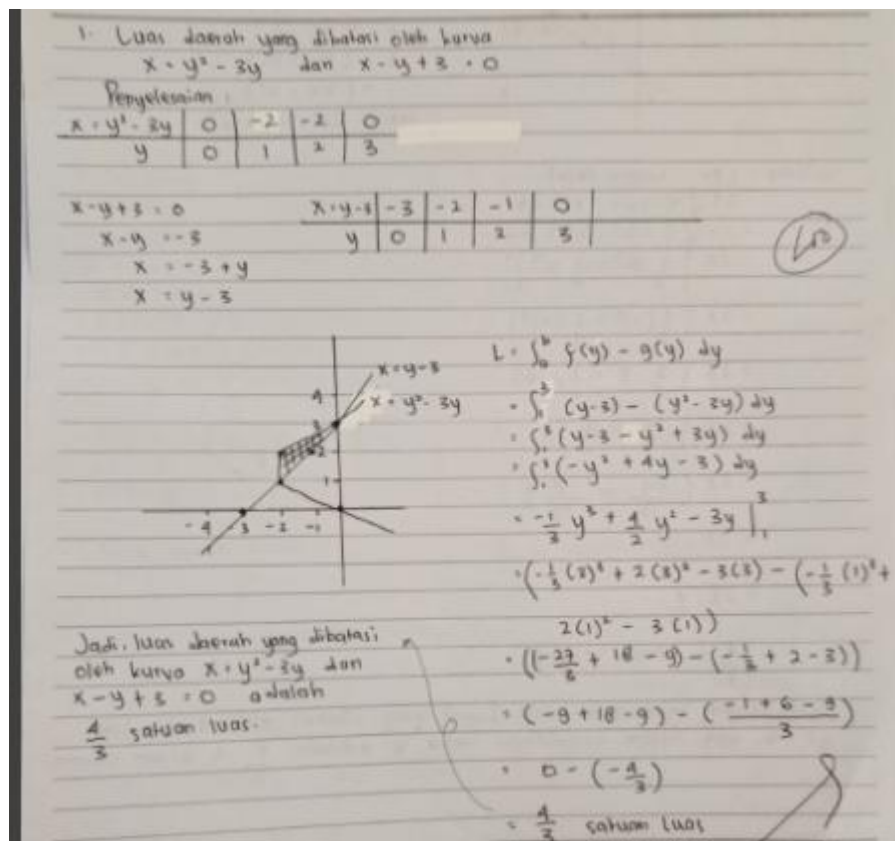 1. Luas daerah yang dibatasi oleh kurva
x = y² - 3y dan x - y + 3 = 0
Penyelesaian :
x = y² - 3y | 0 | -2 | -2 | 0
y | 0 | 1 | 2 | 3
x - y + 3 = 0
x - y = -3
x = -3 + y
x = y - 3
x = y - 3 | -3 | -2 | -1 | 0
y | 0 | 1 | 2 | 3
x = y - 3
x = y² - 3y
4
3
2
1
-4 3 -2 -1
L = ∫ₐᵇ f(y) - g(y) dy
= ∫₁³ (y-3) - (y² - 3y) dy
= ∫₁³ (y - 3 - y² + 3y) dy
= ∫₁³ (-y² + 4y - 3) dy
= -1/3 y³ + 4/2 y² - 3y |₁³
= (-1/3 (3)³ + 2(3)² - 3(3) - (-1/3 (1)³ +
2(1)² - 3(1))
= ((-27/3 + 18 - 9) - (-1/3 + 2 - 3))
= (-9 + 18 - 9) - ((-1 + 6 - 9)/3)
= 0 - (-4/3)
= 4/3 satuan luas
Jadi, luas daerah yang dibatasi
oleh kurva x = y² - 3y dan
x - y + 3 = 0 adalah
4/3 satuan luas.